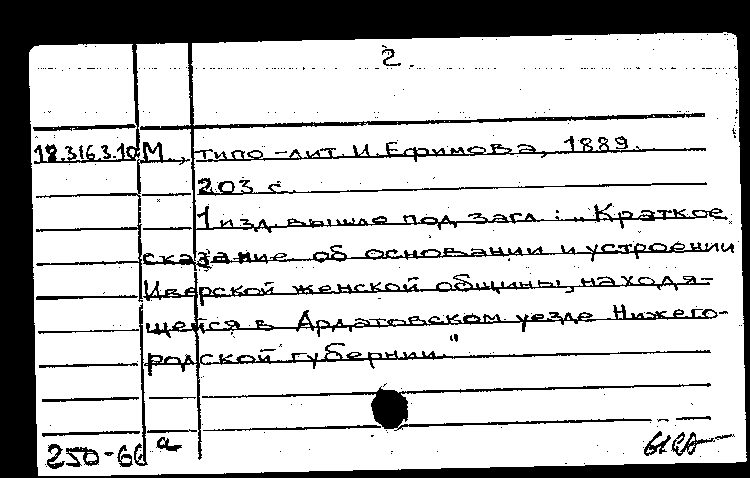 2.
18.316.3.10 М., типо-лит. И. Ефимова, 1889.
203 с.
1 изд. вышло под загл.: „Краткое
сказание об основании и устроении
Иверской женской общины, находя-
щейся в Ардатовском уезде Нижего-
родской губернии."
250-66 а